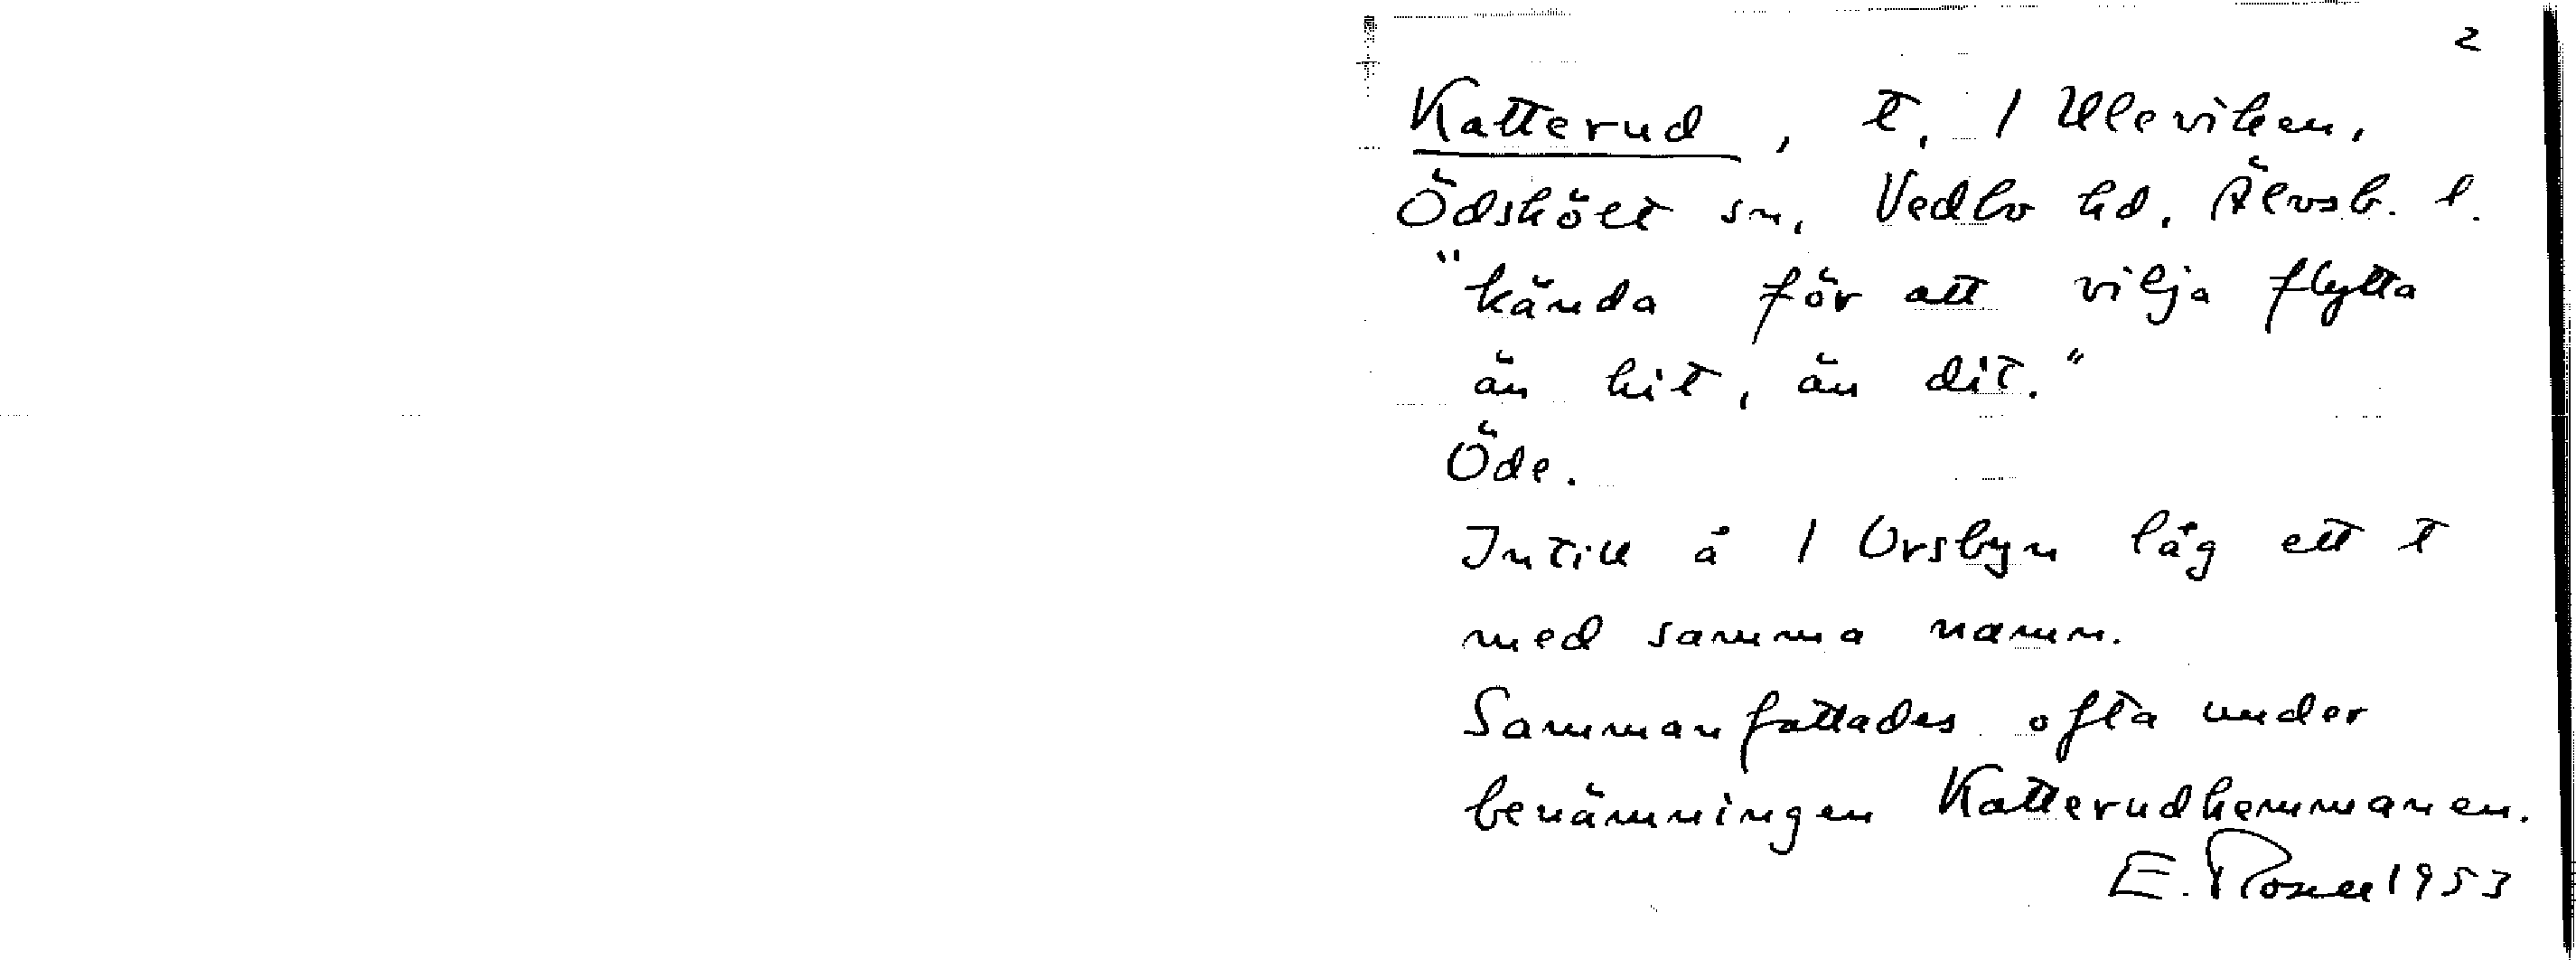 2
Katterud, t. 1 Uleviken,
Ödskölt sn, Vedbo hd, Älvsb. l.
"kända för att vilja flytta
än hit, än dit."
Öde.
Intill å 1 Ursbyn låg ett t
med samma namn.
Sammanfattades ofta under
benämningen Katterudhemmanen.
E. Rosell 1953